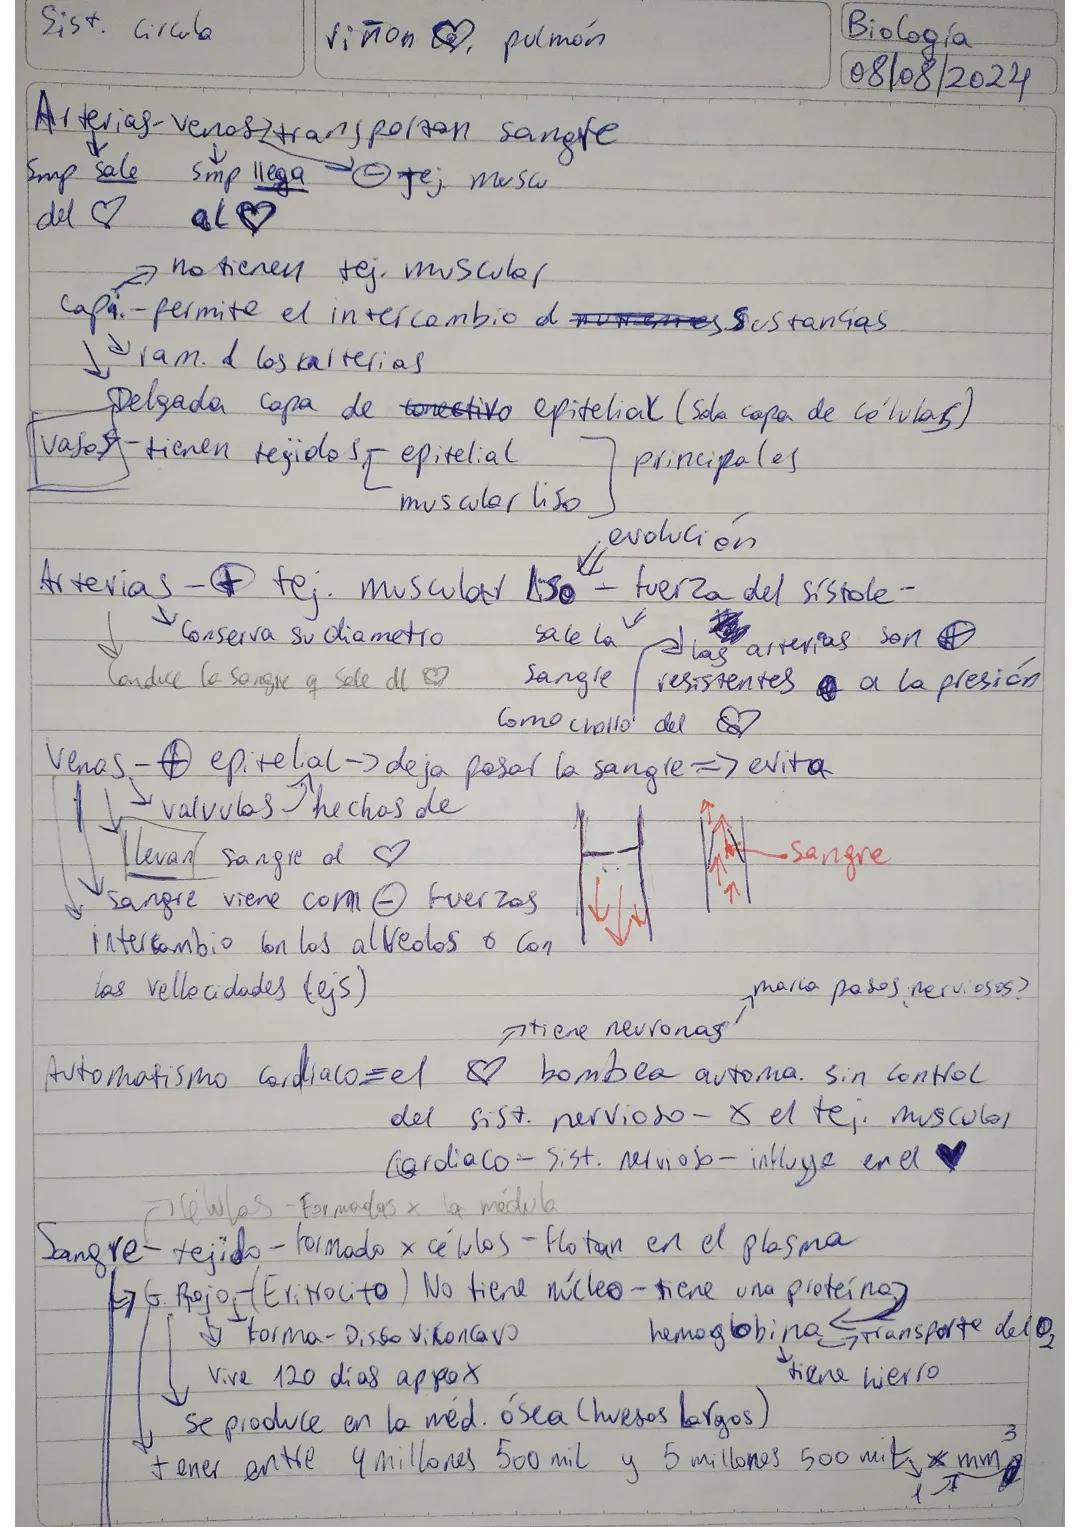 Sist. Circula
riñon ♡, pulmón
Biología
08/08/2024
Arterias-venas transportan sangre
Smp sale del ♡
Smp llega al ♡
⊖ tej. muscu
no tienen tej. muscular
Capi.-permite el intercambio d nutrientes Sustancias
ram. d las arterias
Delgada capa de conectivo epitelial (Sola capa de células)
Vasos-tienen tejidos epitelial
muscular liso
principales
evolución
Arterias-⊕ tej. muscular liso - fuerza del sístole-
Conserva su diametro
Conduce la Sangre q sale dl ♡
sale la sangre como chorro del ♡
las arterias son ⊕ resistentes a la presión
Venas-⊕ epitelial->deja pasar la sangre=>evita
valvulas hechas de
llevan sangre al ♡
sangre
Sangre viene con ⊖ fuerzas
intercambio con los alveolos o con
las vellocidades (ejs)
marca pasos nerviosos?
tiene neuronas
Automatismo Cardiaco=el ♡ bombea automa. sin control
del sist. nervioso- x el tej. muscular
Cardiaco- Sist. nervioso- influye en el ♥
células-Formadas x la médula
Sangre- tejido-formado x células-flotan en el plasma
G. Rojo-(Eritrocito) No tiene núcleo-tiene una proteína
forma-Disco viconcavo
hemoglobina
transporte del O₂
tiene hierro
Vive 120 dias approx
Se produce en la méd. ósea (huesos largos)
tener entre 4 millones 500 mil y 5 millones 500 mil x mm³
1